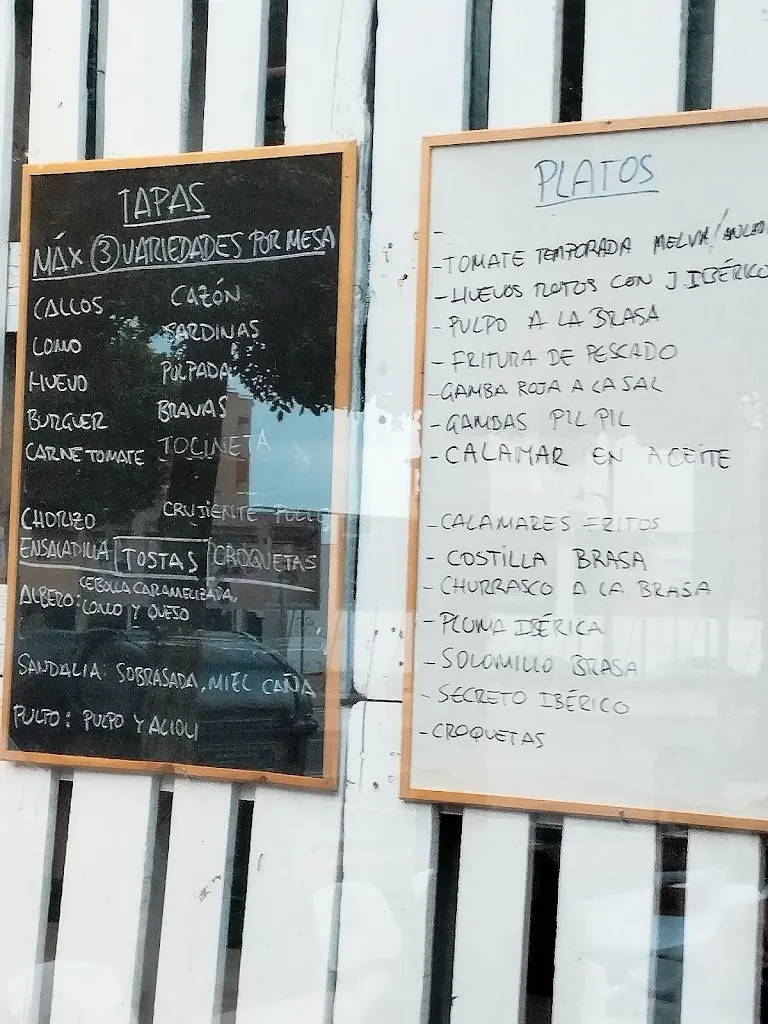 TAPAS
MÁX 3 VARIEDADES POR MESA
CALLOS
LOMO
HUEVO
BURGUER
CARNE TOMATE
CHORIZO
ENSALADILLA
CAZÓN
SARDINAS
PULPADA
BRAVAS
TOCINETA
CRUJIENTE POLLO
CROQUETAS
TOSTAS
CEBOLLA CARAMELIZADA,
ALBERO: LOMO Y QUESO
SANDALIA: SOBRASADA, MIEL CAÑA
PULPO: PULPO Y ALIOLI
PLATOS
-
-TOMATE TEMPORADA MELVA/
-HUEVOS ROTOS CON J. IBÉRICO
- PULPO A LA BRASA
- FRITURA DE PESCADO
-GAMBA ROJA A LA SAL
-GAMBAS PIL PIL
-CALAMAR EN ACEITE
-CALAMARES FRITOS
- COSTILLA BRASA
-CHURRASCO A LA BRASA
-PLUMA IBÉRICA
-SOLOMILLO BRASA
-SECRETO IBÉRICO
-CROQUETAS